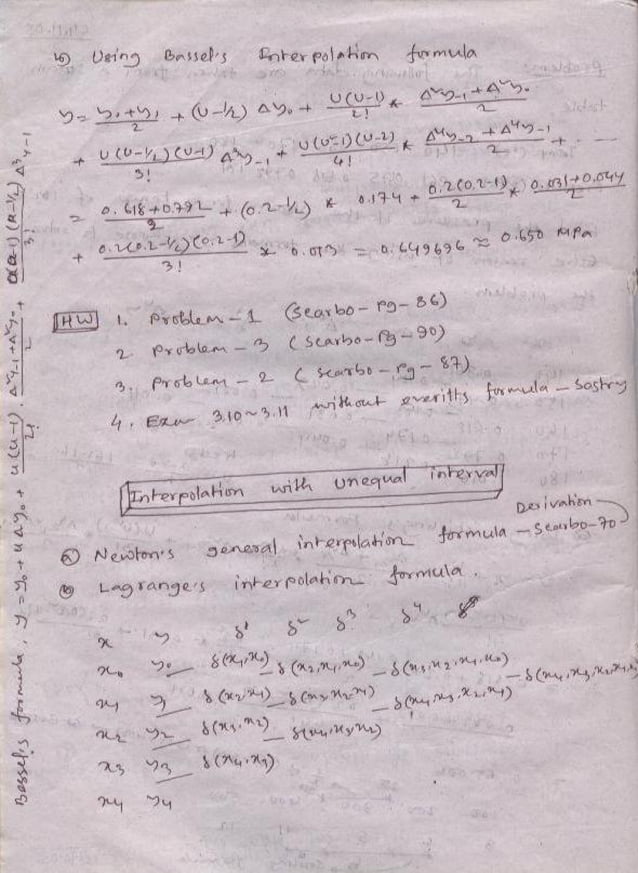 b) Using Bassel's Interpolation formula
y = (y₀+y₁)/2 + (U-½) Δy₀ + U(U-1)/2! * (Δ²y₋₁+Δ²y₀)/2
+ U(U-½)(U-1)/3! Δ³y₋₁ + U(U²-1)(U-2)/4! * (Δ⁴y₋₂+Δ⁴y₋₁)/2 + ...
= (0.618+0.792)/2 + (0.2-½) * 0.174 + 0.2(0.2-1)/2 * (0.031+0.044)/2
+ 0.2(0.2-½)(0.2-1)/3! * 0.013 = 0.649696 ≈ 0.650 MPa
HW 1. Problem-1 (Scarbo-Pg-86)
2 Problem-3 (Scarbo-Pg-90)
3. Problem-2 (Scarbo-Pg-87)
4. Exam 3.10~3.11 without everitt's formula - Sastry
Interpolation with unequal interval
Derivation
ⓐ Newton's general interpolation formula - Scarbo-70
ⓑ Lagrange's interpolation formula.
x y δ¹ δ² δ³ δ⁴
x₀ y₀ δ(x₁,x₀) δ(x₂,x₁,x₀) δ(x₃,x₂,x₁,x₀) δ(x₄,x₃,x₂,x₁,x₀)
x₁ y₁ δ(x₂,x₁) δ(x₃,x₂,x₁) δ(x₄,x₃,x₂,x₁)
x₂ y₂ δ(x₃,x₂) δ(x₄,x₃,x₂)
x₃ y₃ δ(x₄,x₃)
x₄ y₄
Bassel's formula, y = y₀ + uΔy₀ + u(u-1)/2! · (Δ²y₋₁+Δ²y₀)/2 + u(u-1)(u-½)/3! Δ³y₋₁